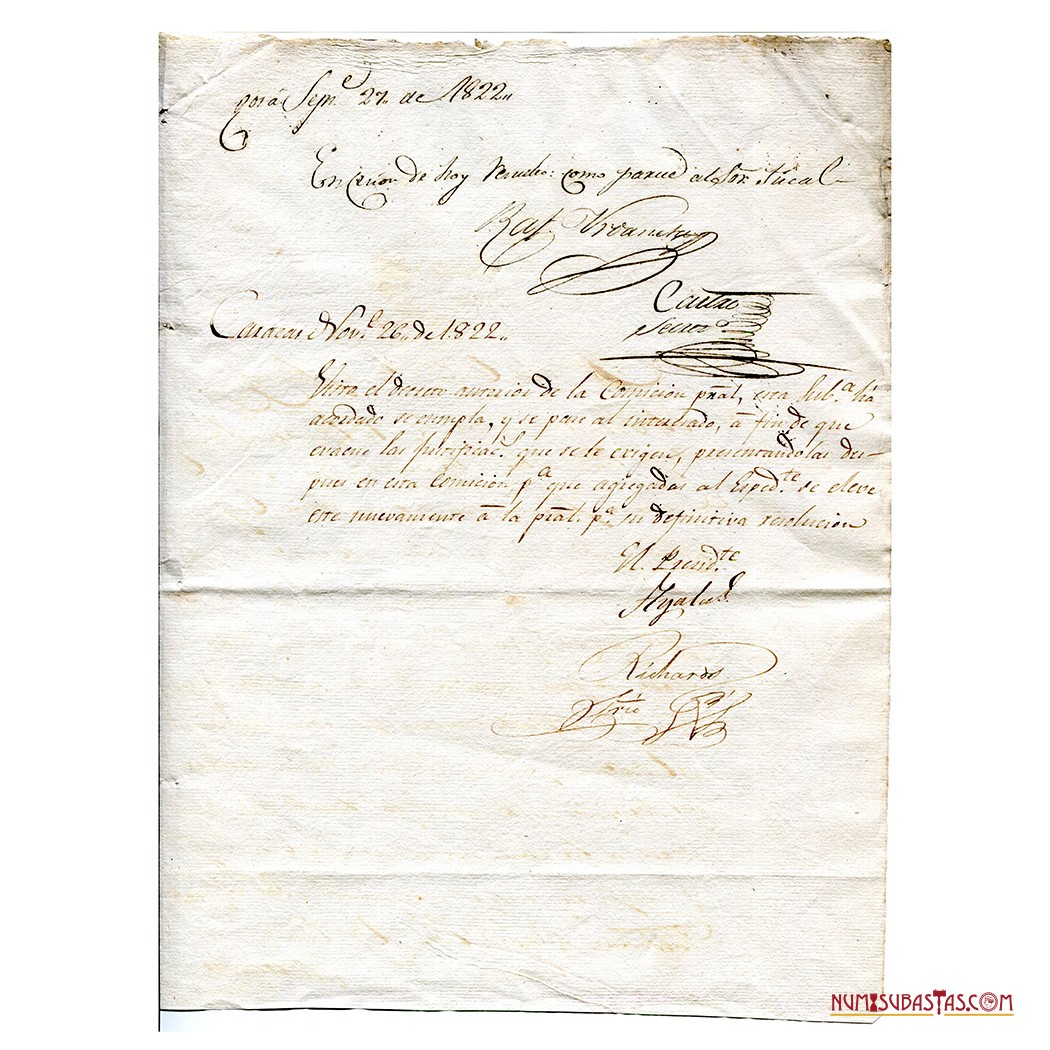 gotá Sepᵉ 27,, de 1822,,
En sesion de hoy Resuelto: como parece al Sor. Fiscal
Raf. Urdaneta
Castro
Secret.º
Caracas Nov.ᵉ 26,, de 1822,,
Visto el decreto anterior de la Comicion pral, esta Sub.ᵃ há
acordado se cumpla, y se pase al interesado, á fin de que
evacue las justificac.ˢ que se le exigen, presentandolas des-
pues en esta Comicion p.ᵃ que agregadas al Esped.ᵗᵉ se eleve
este nuevamente á la pral. p.ᵃ su definitiva resolucion
El Presid.ᵗᵉ
Ayala
Richards
Srio
NUMISUBASTAS.COM